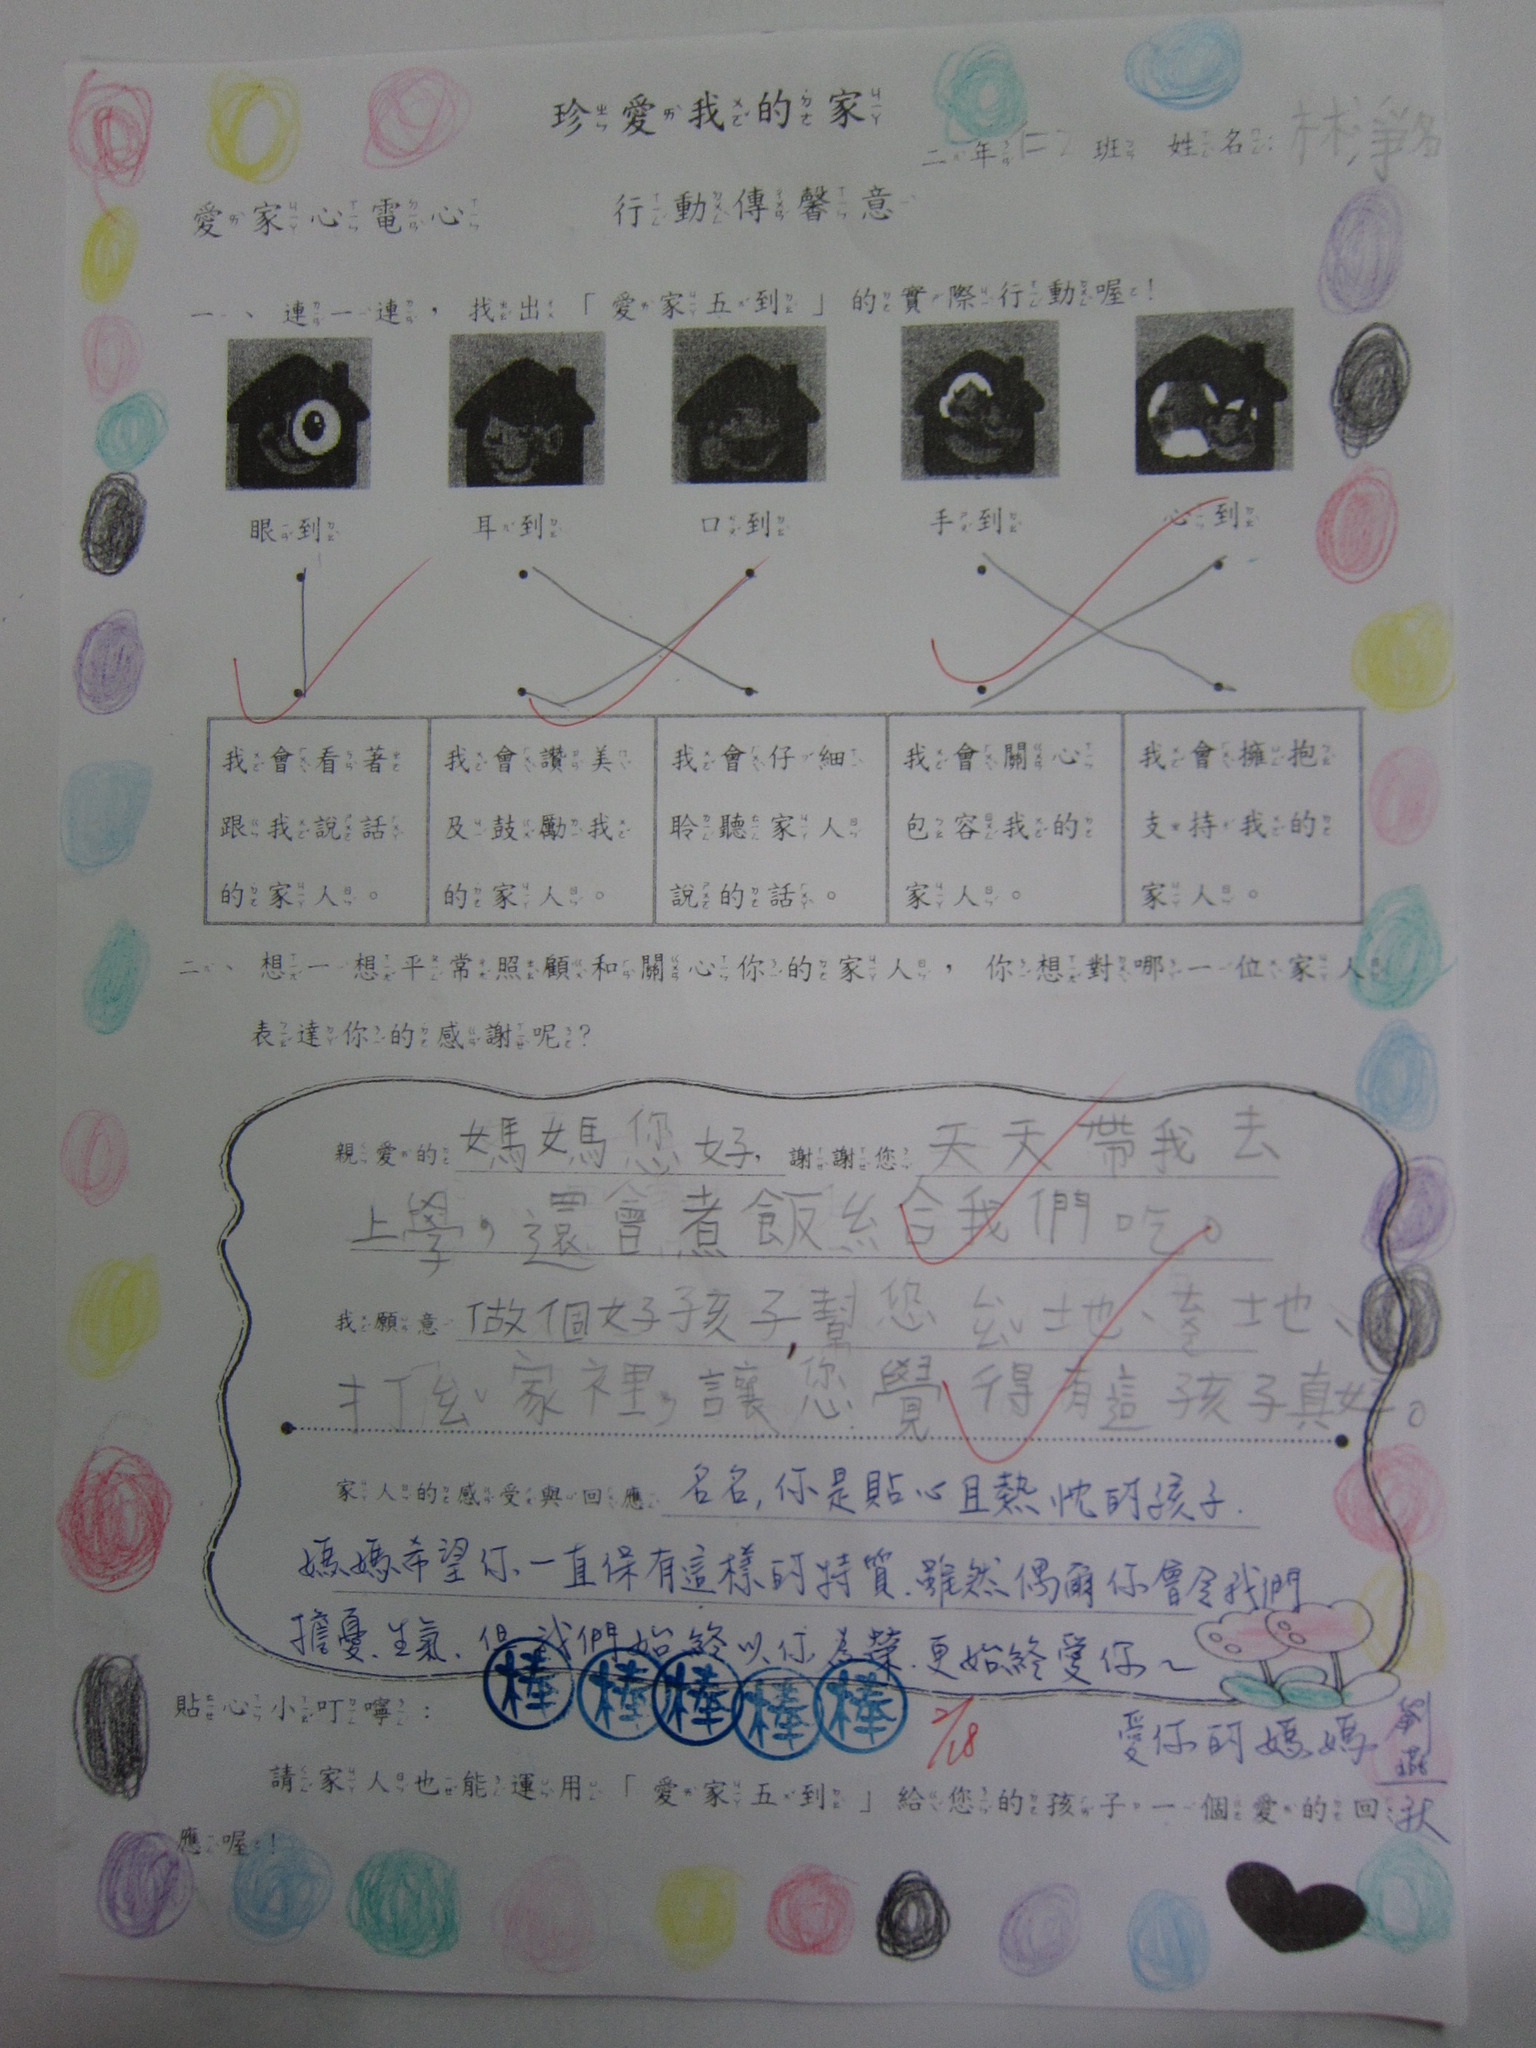 珍愛我的家
二年仁班 姓名：林淨名
愛家心電心 行動傳馨意
一、連一連，找出「愛家五到」的實際行動喔！
眼到 耳到 口到 手到 心到
我會看著跟我說話的家人。
我會讚美及鼓勵我的家人。
我會仔細聆聽家人說的話。
我會關心包容我的家人。
我會擁抱支持我的家人。
二、想一想平常照顧和關心你的家人，你想對哪一位家人
表達你的感謝呢？
親愛的媽媽您好，謝謝您天天帶我去
上學，還會煮飯給我們吃。
我願意做個好孩子，幫您 地、 地、
打 家裡，讓您覺得有這孩子真好。
家人的感受與回應 名名，你是貼心且熱忱的孩子.
媽媽希望你一直保有這樣的特質.雖然偶爾你會令我們
擔憂、生氣.但我們始終以你為榮.更始終愛你~
棒 棒 棒 棒 棒
2/18
愛你的媽媽 劉燕秋
貼心小叮嚀：
請家人也能運用「愛家五到」給您的孩子一個愛的回
應喔！